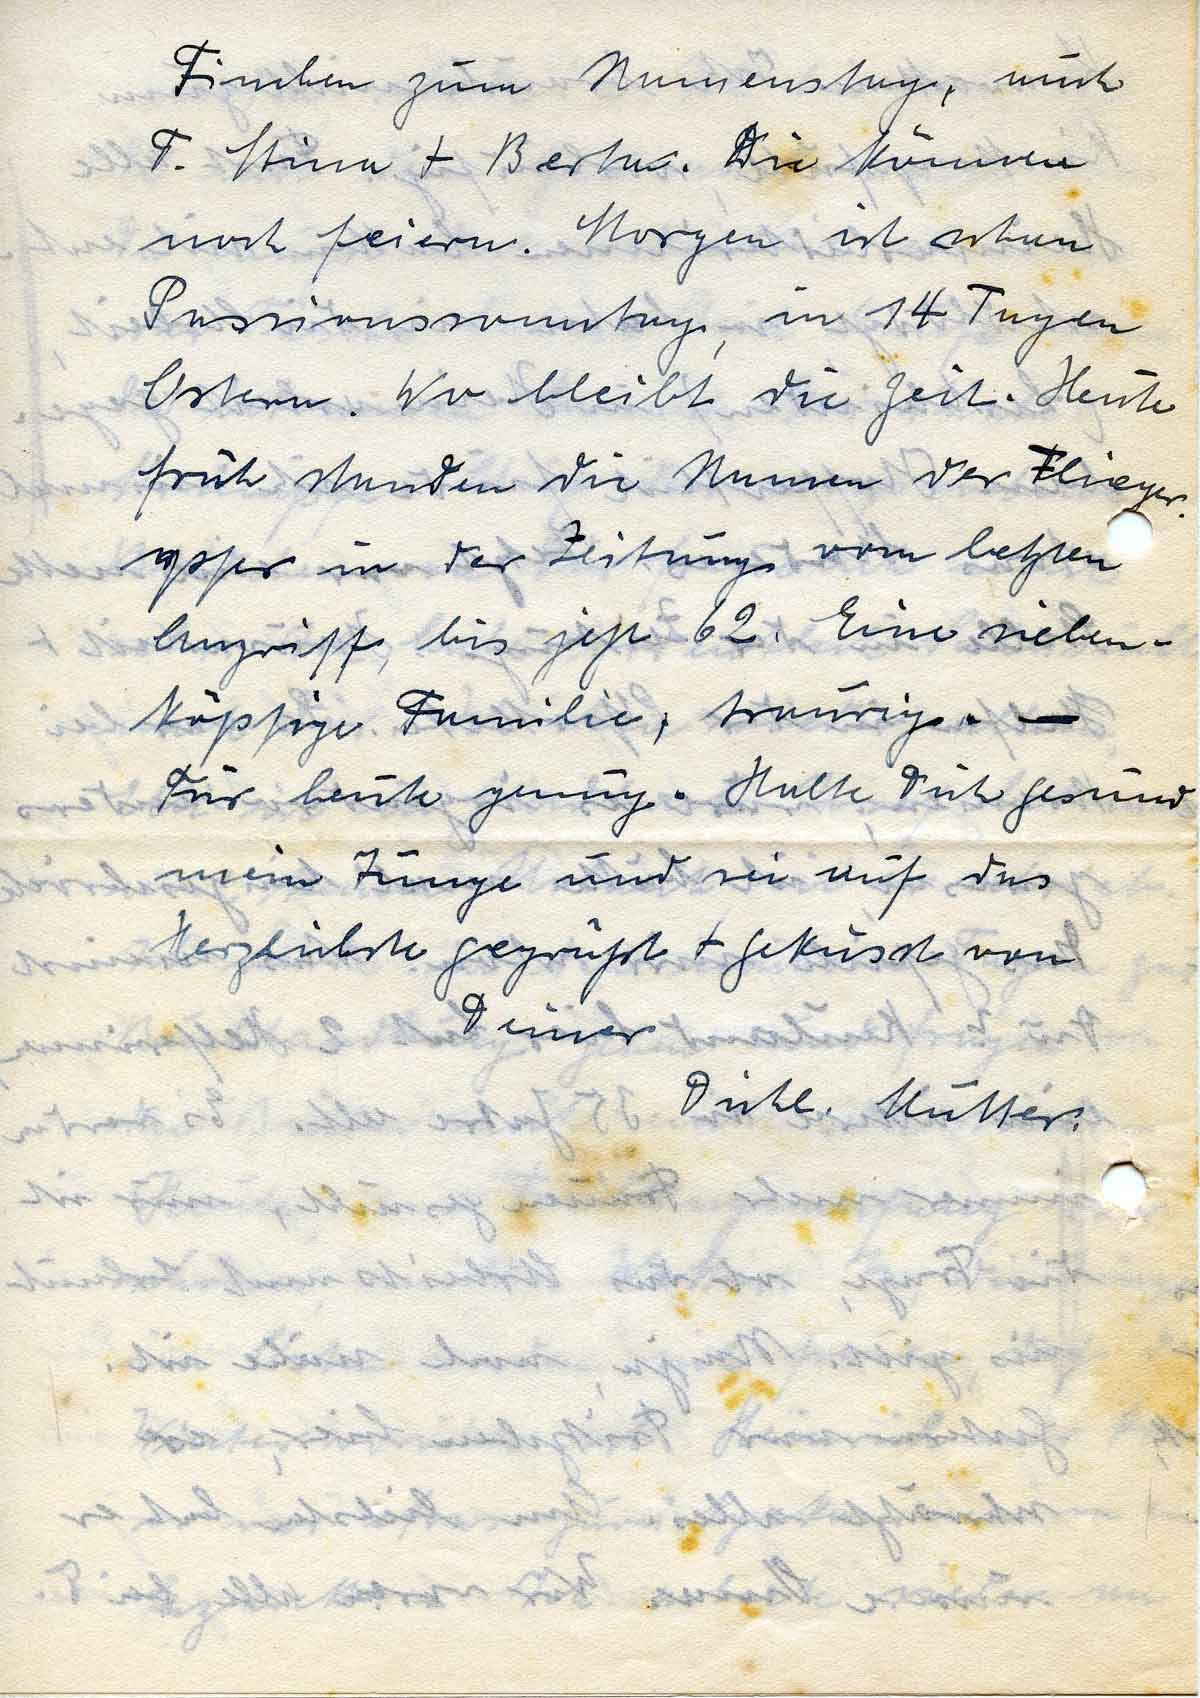 Finchen zum Namenstag, auch
T. Stina + Berta. Die können
noch feiern. Morgen ist schon
Passionssonntag, in 14 Tagen
Ostern. Wo bleibt die Zeit. Heute
früh standen die Namen der Flieger-
opfer in der Zeitung vom letzten
Angriff, bis jetzt 62. Eine sieben-
köpfige Familie, traurig. —
Für heute genug. Halte Dich gesund
mein Junge und sei auf das
Herzlichste gegrüßt + geküsst von
Deiner
Dichl. Mutter.